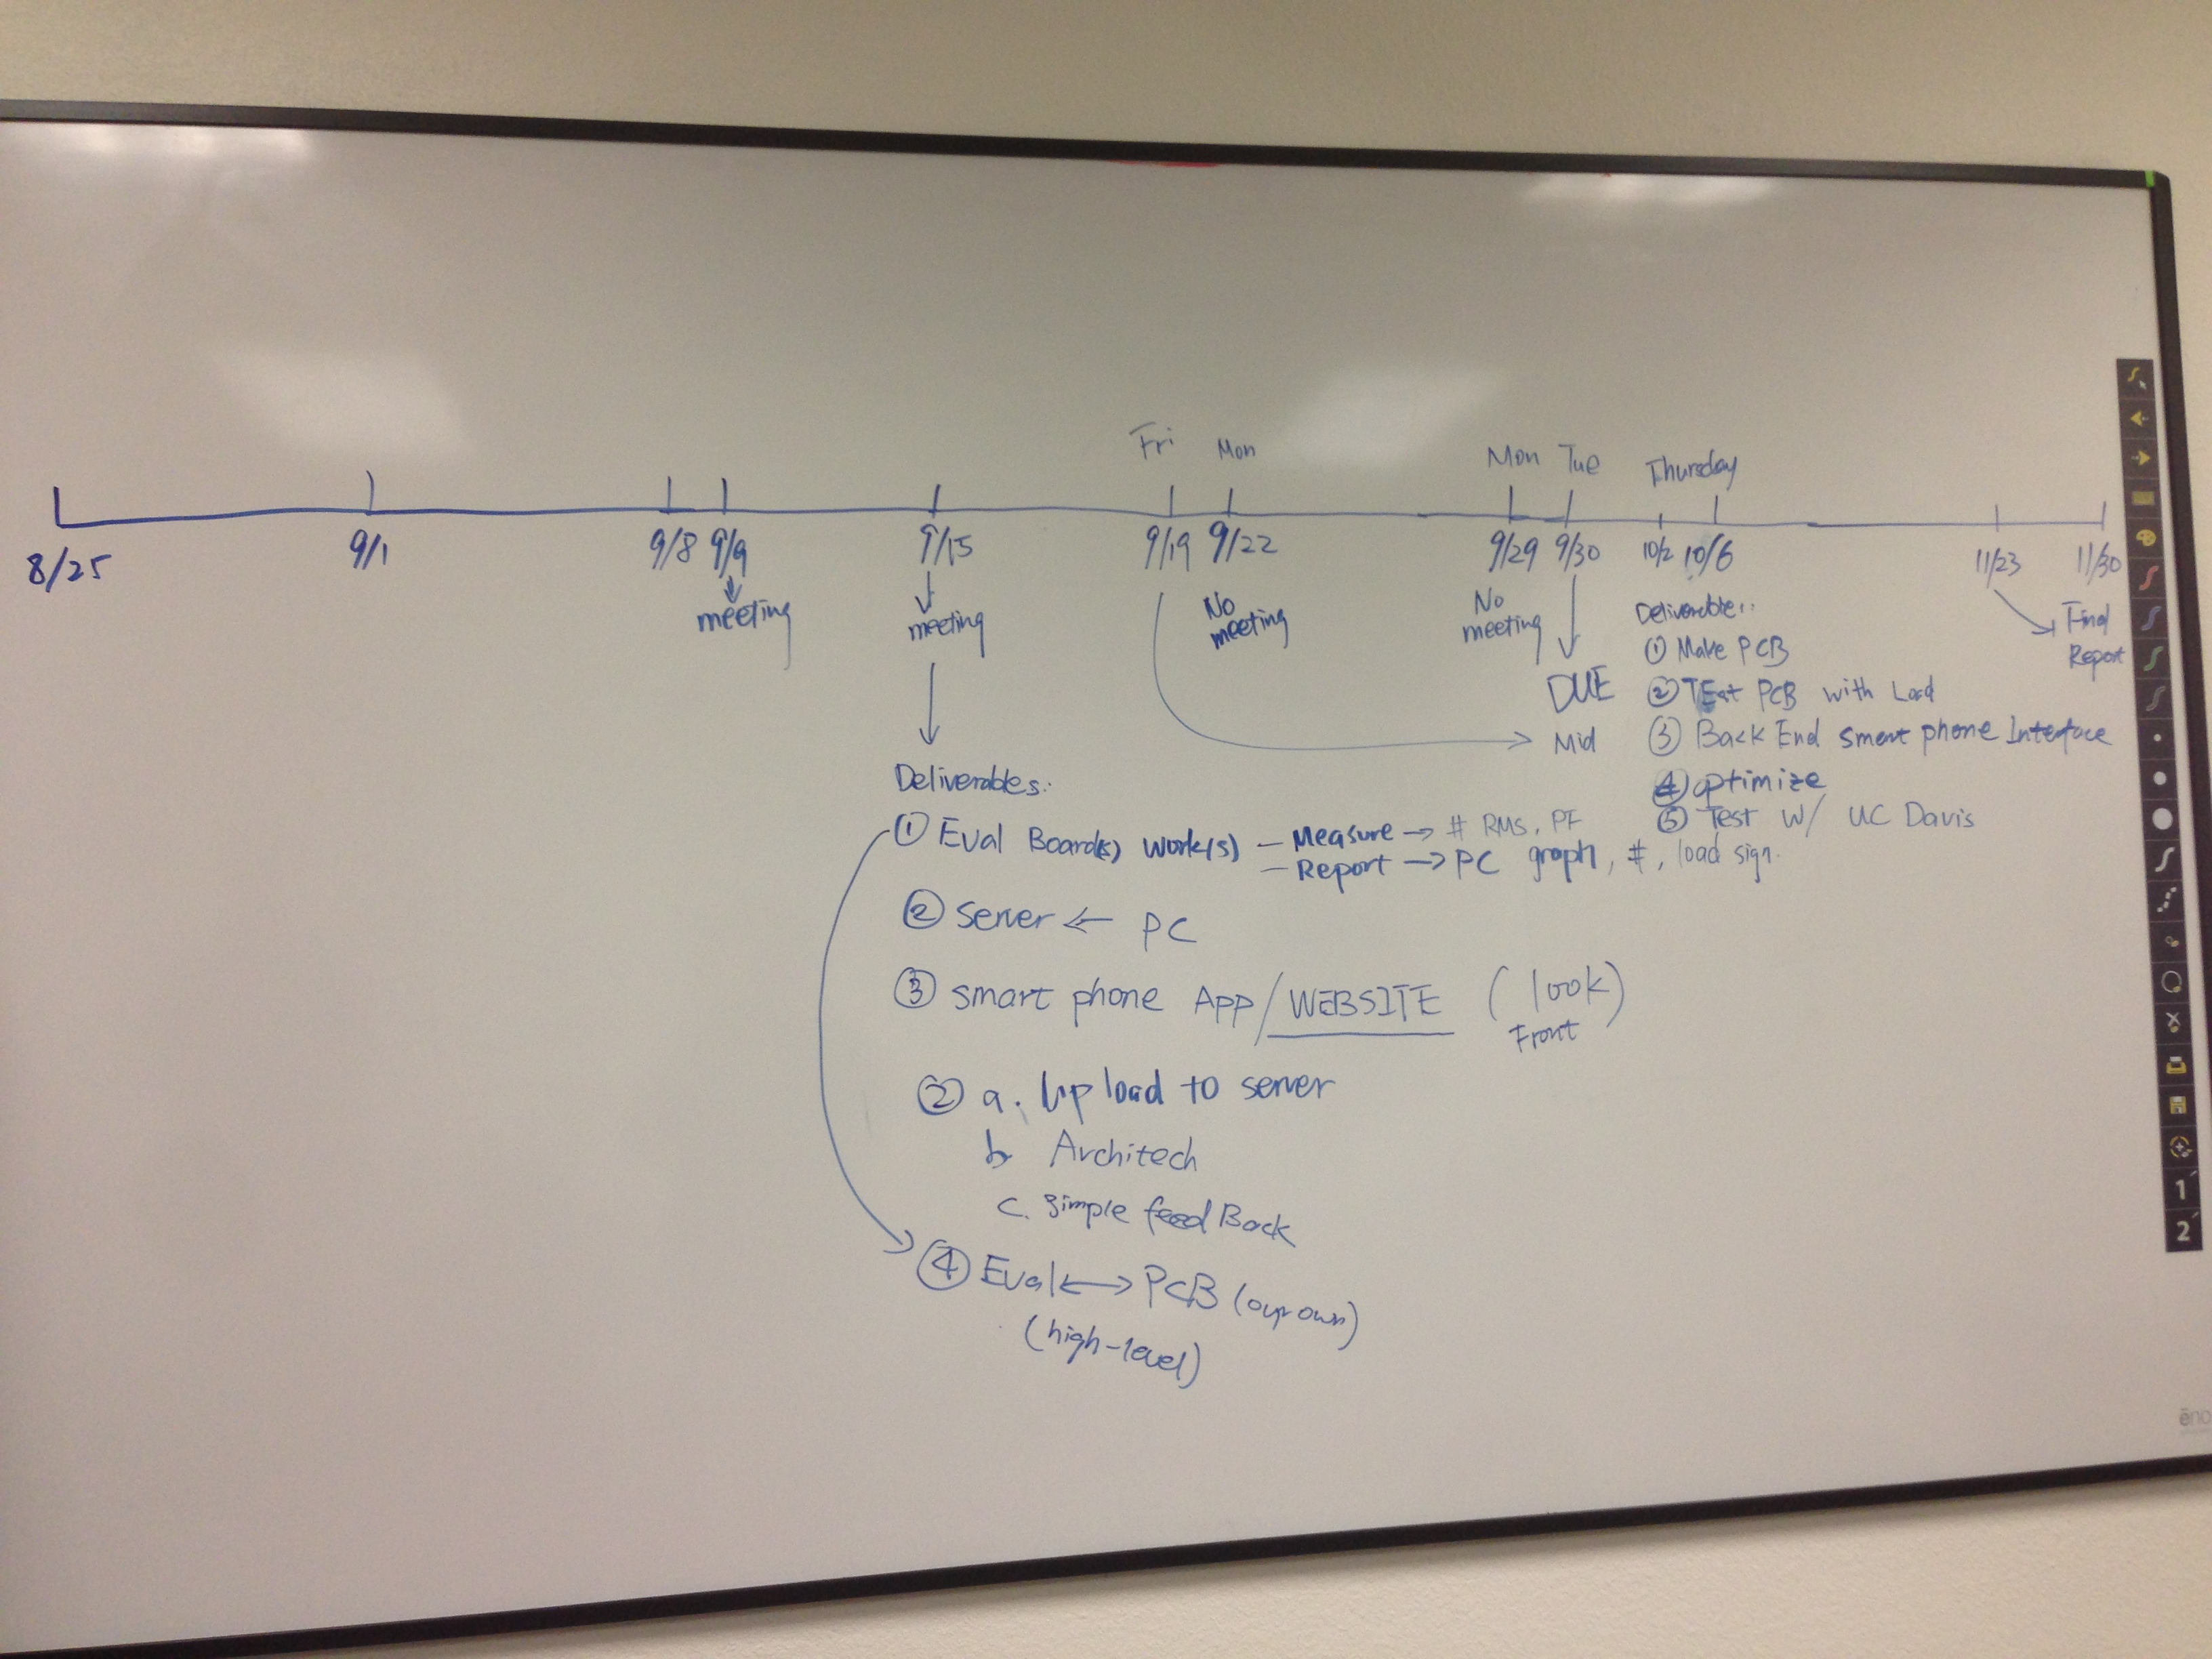 Fri Mon Mon Tue Thursday
8/25 9/1 9/8 9/9 9/15 9/19 9/22 9/29 9/30 10/2 10/6 11/23 11/30
meeting
meeting
No
meeting
No
meeting
DUE
Mid
Final
Report
① Make PCB
② TEst PCB with Load
③ Back End smart phone Interface
④ optimize
⑤ Test w/ UC Davis
Deliverables:
① Eval Board(s) work(s) – Measure → # RMS, PF
– Report → PC graph, #, load sign.
② Server ← PC
③ smart phone App / WEBSITE (look)
Front
② a. Upload to server
b Architech
c. Simple feed Back
④ Eval ↔ PCB (our own)
(high-level)
1
2
eno